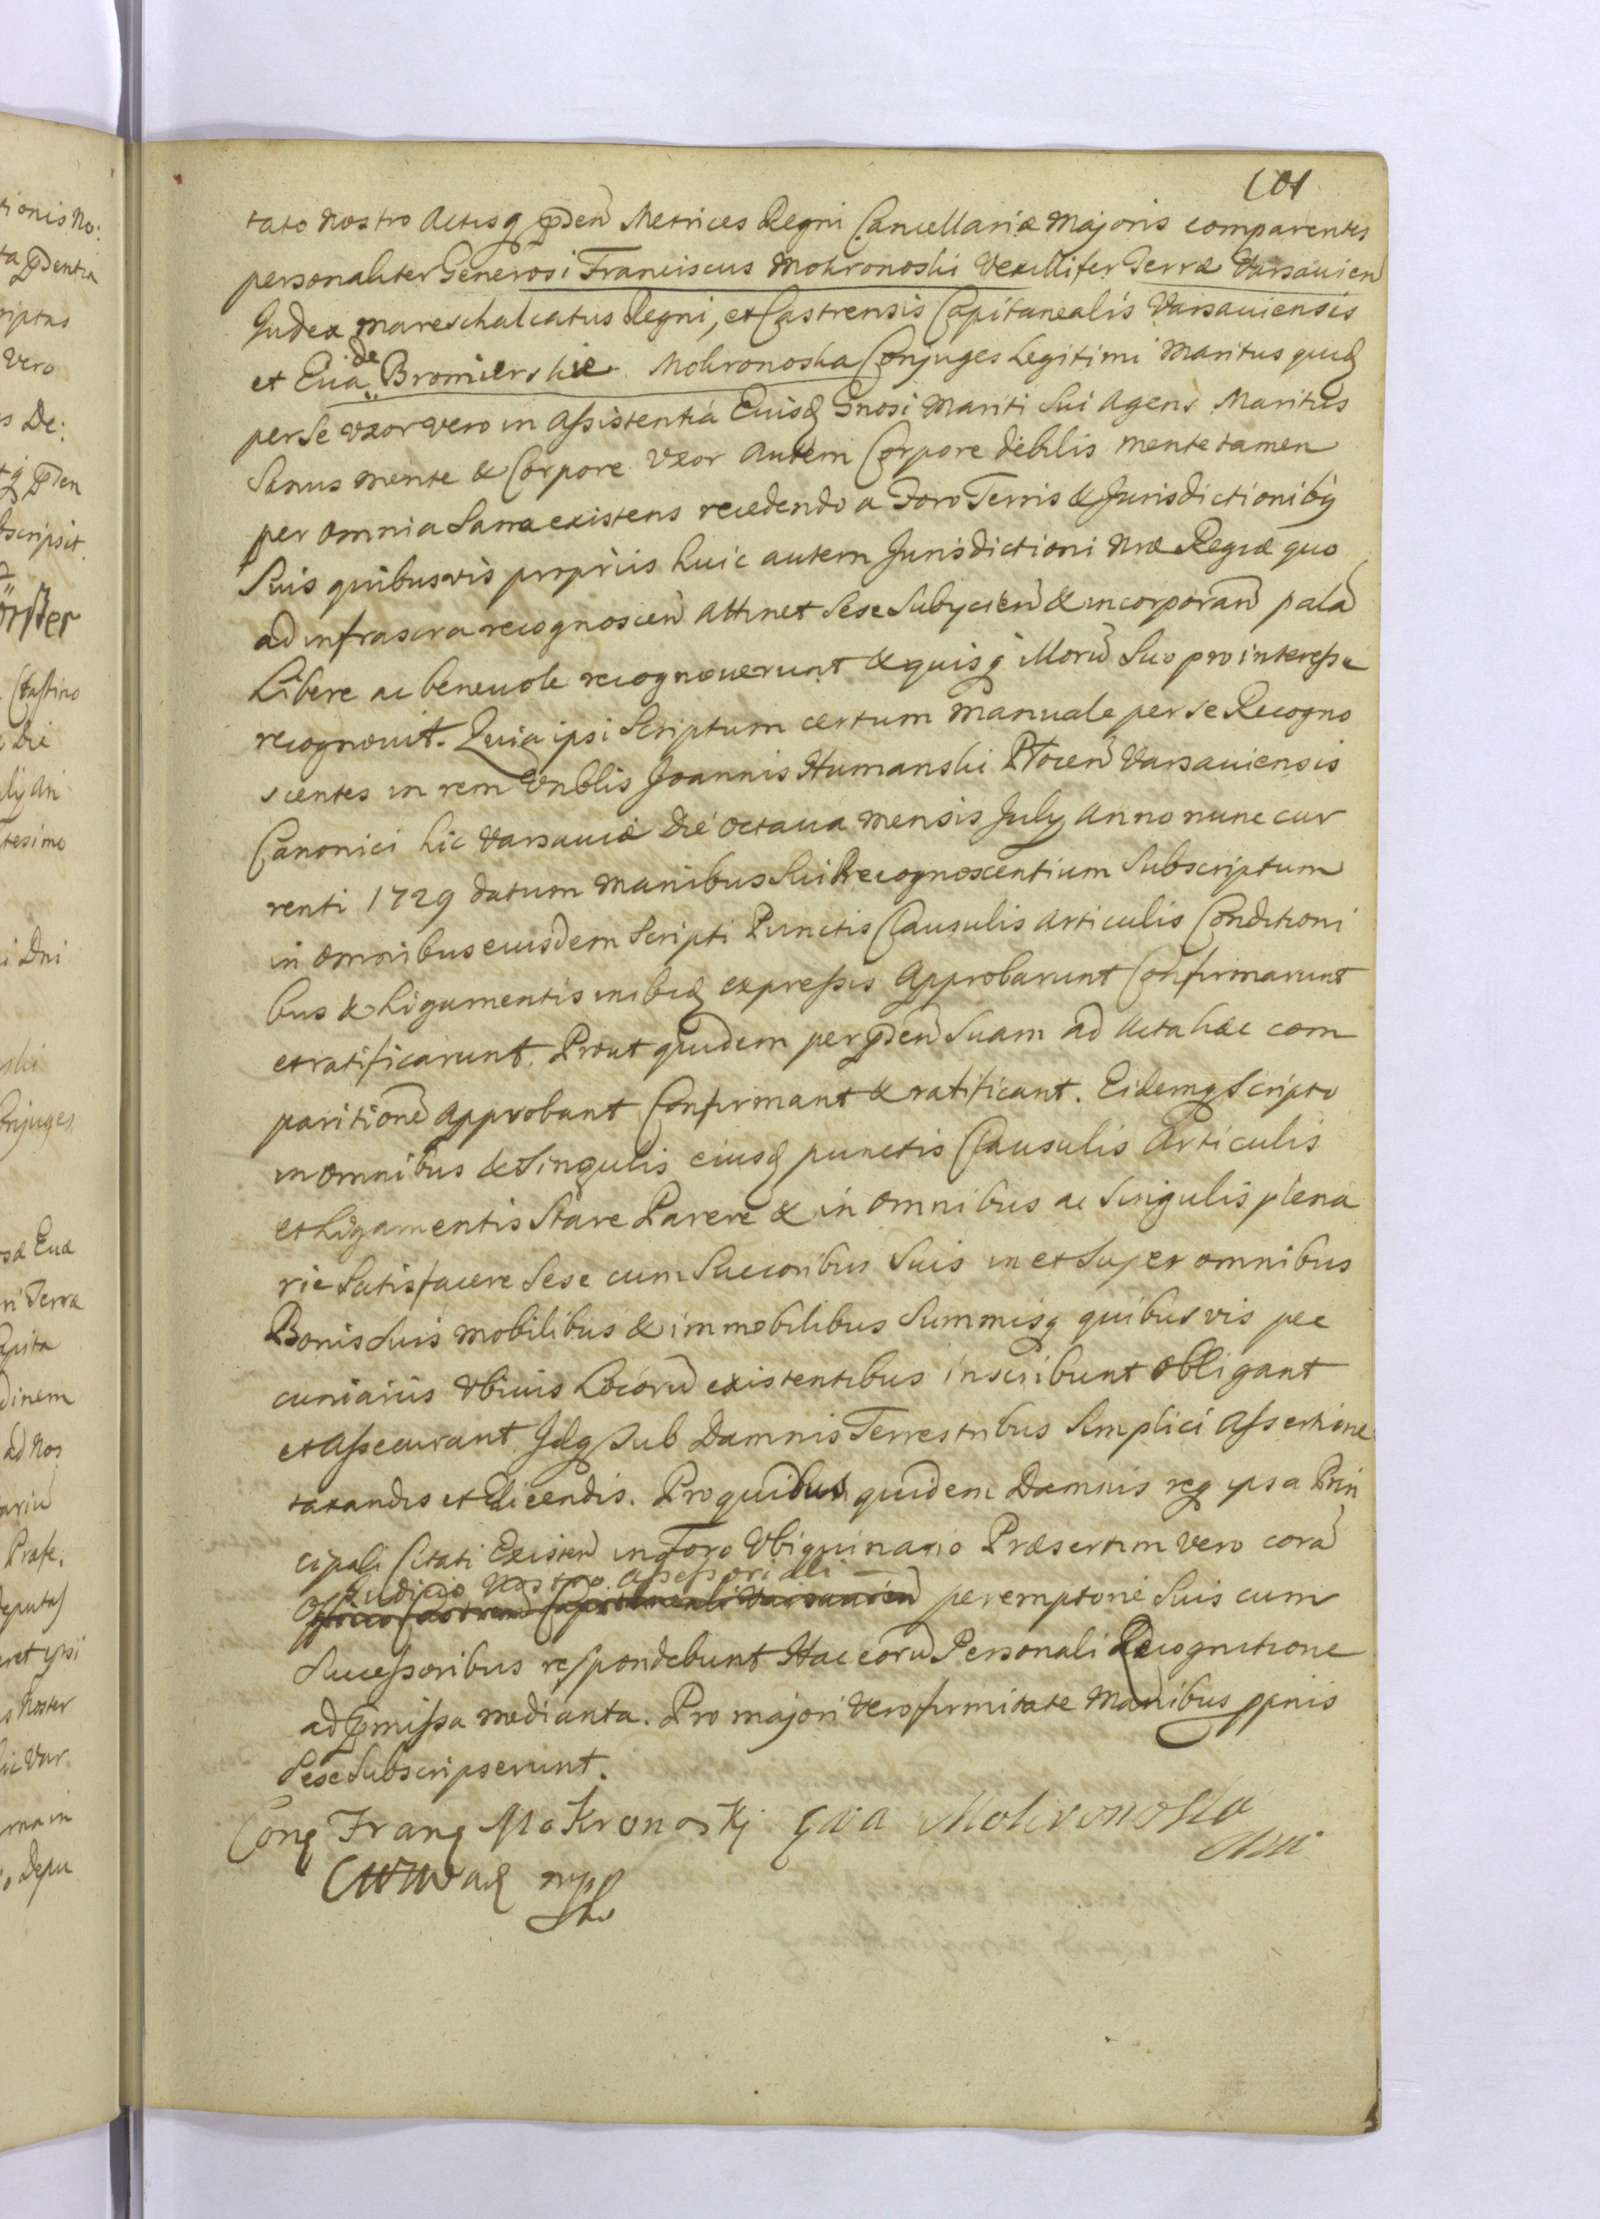 101
tato nostro Actisq pden Metrices Regni Cancellariæ Majoris comparentes
personaliter Generosi Franciscus Mokronoski Vexillifer Terræ Varsavien
Judex Mareschalcatus Regni, et Castrensis Capitanealis Varsaviensis
et Eua de Bromierskie Mokronoska Conjuges Legitimi Maritus quid
per Se vxor vero in Assistentia Eiusd Gnosi Mariti Sui Agens Maritus
Sanus mente & Corpore Vxor Autem Corpore debilis mente tamen
per omnia Sana existens recedendo a Foro Terris & Jurisdictionibq
Suis quibusvis proprijs huic autem Jurisdictioni Nræ Regiæ quo
ad infrascra recognoscen Attinet Sese Subycien & incorporan pala
Libere ac beneuole recognouerunt & quisq Moru Suo pro interesse
recognouit. Quia ipsi Scriptum certum Manuale per se Recogno
scentes in rem Vnblis Joannis Humanski Plocen Varsauiensis
Canonici hic Varsauiæ Die Octaua mensis July Anno nunc cur
renti 1729 datum Manibus Sui Recognoscentium Subscriptum
in omnibus eiusdem Scripti Punctis Clausulis Articulis Conditioni
bus & Ligamentis inibid expressis Approbarunt Confirmarunt
et ratificarunt. Prout quidem per pden Suam ad Acta hæc com
paritione Approbant Confirmant & ratificant. Eidemq Scripto
in omnibus & Singulis eiusd punctis Clausulis Articulis
et Ligamentis Stare Parere & in omnibus ac Singulis plena
rie Satisfacere Sese cum Succoribus Suis in et Super omnibus
Bonis Suis mobilibus & immobilibus Summisq quibusvis pec
cuniariis Vbiuis Locoru existentibus inscribunt Obligant
et Assecurant. Jdq Sub Damnis Terrestribus Simplici Assertione
taxandis et dicendis. Pro quibus quidem Damnis req ipsa Prin
cipali Citati Existen in Foro Vbiquinario Præsertim vero cora
Judicio Nostro Assessoriali
Officio Castren Capitaneali Varsavien peremptorie Suis cum
Successoribus respondebunt Hac eoru Personali Recognitione
ad pmissa mediante. Pro majori vero firmitate Manibus pprijs
Sese Subscripserunt.
Franq Mokronoskj Ewa Mokronoska